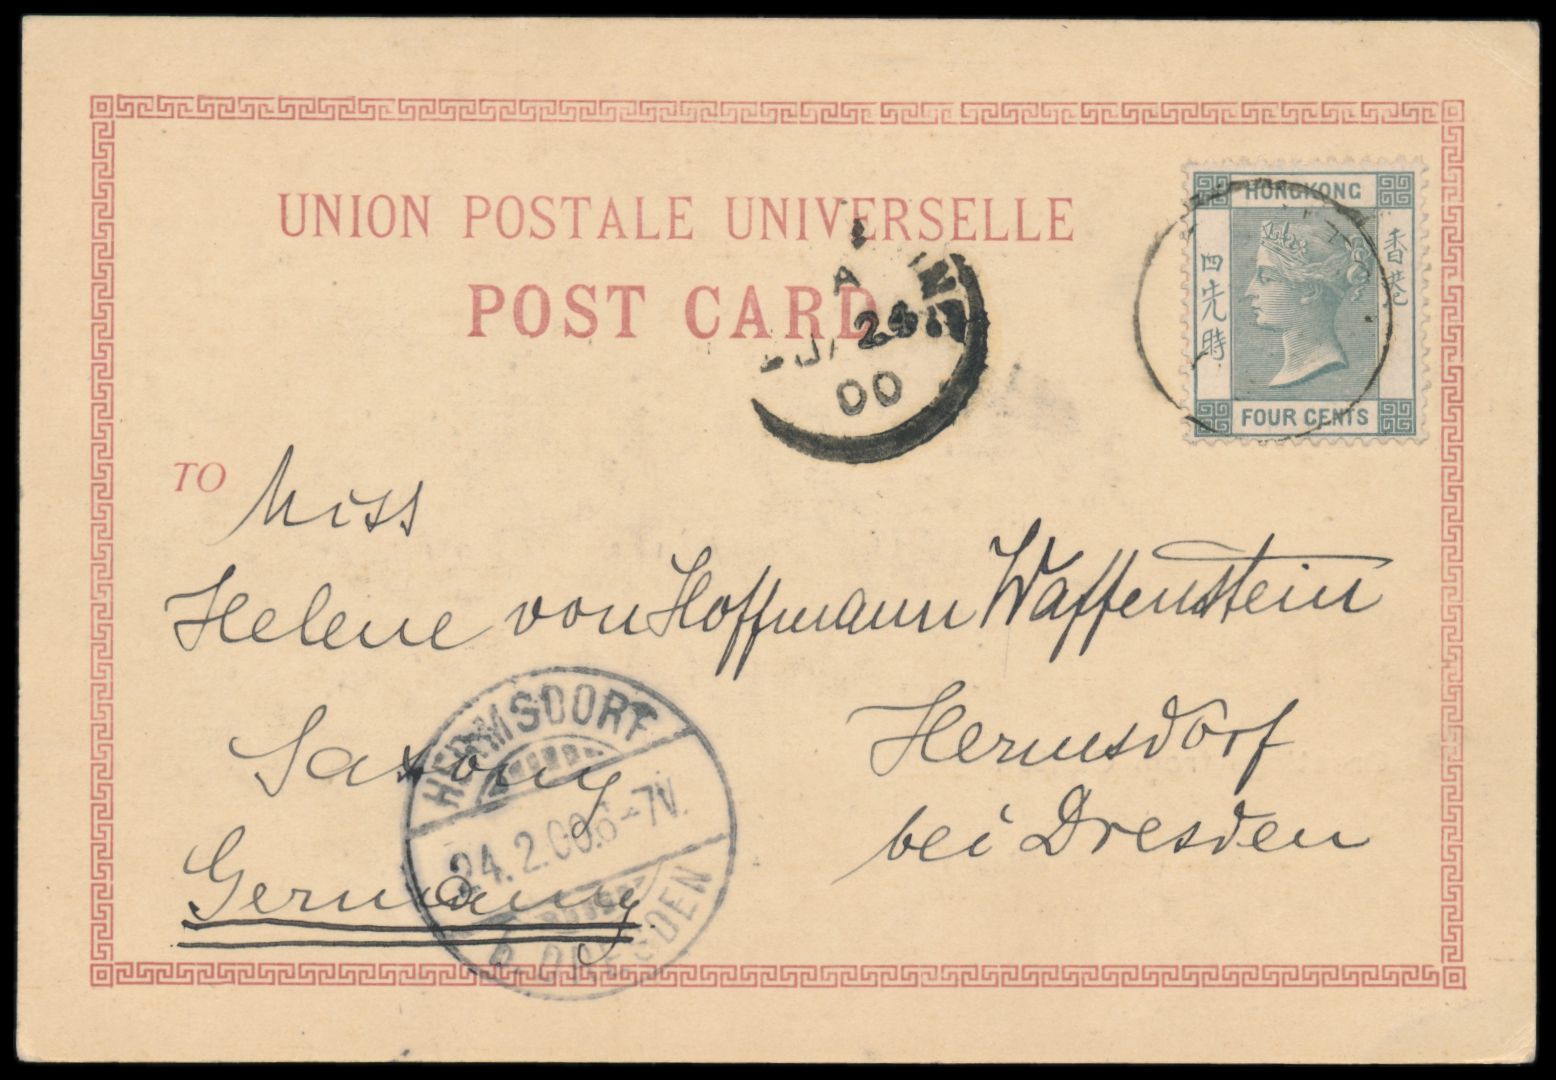 UNION POSTALE UNIVERSELLE
POST CARD
HONGKONG
香港
四先時
FOUR CENTS
A
24
00
TO
Miss
Helene von Hoffmann Waffenstein
Saxony
Hermsdorf
bei Dresden
Germany
HERMSDORF
24.2.00.6-7V.
b. DRESDEN